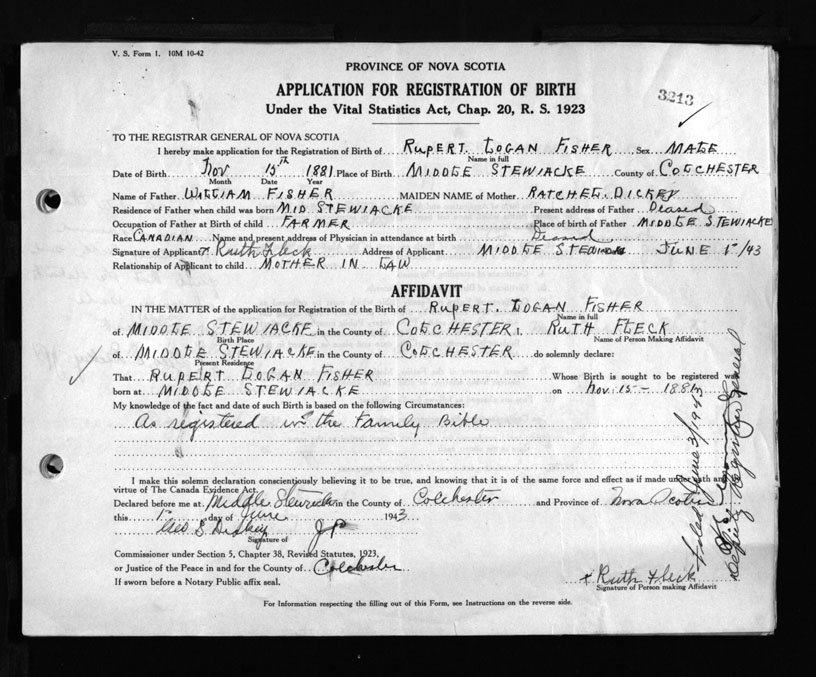 V. S. Form 1. 10M 10-42
PROVINCE OF NOVA SCOTIA
APPLICATION FOR REGISTRATION OF BIRTH
Under the Vital Statistics Act, Chap. 20, R. S. 1923
3213
TO THE REGISTRAR GENERAL OF NOVA SCOTIA
I hereby make application for the Registration of Birth of RUPERT LOGAN FISHER Sex MALE
Name in full
Date of Birth Nov 15th 1881 Place of Birth MIDDLE STEWIACKE County of COLCHESTER
Month Date Year
Name of Father WILLIAM FISHER MAIDEN NAME of Mother RATCHEL DICKEY
Residence of Father when child was born MID STEWIACKE Present address of Father Deased
Occupation of Father at Birth of child FARMER Place of birth of Father MIDDLE STEWIACKE
Race CANADIAN Name and present address of Physician in attendance at birth Deasd
Signature of Applicant Ruth Fleck Address of Applicant MIDDLE STEWIACKE JUNE 1st/43
Relationship of Applicant to child MOTHER IN LAW
AFFIDAVIT
IN THE MATTER of the application for Registration of the Birth of RUPERT LOGAN FISHER
Name in full
of MIDDLE STEWIACKE in the County of COLCHESTER I, RUTH FLECK
Birth Place Name of Person Making Affidavit
of MIDDLE STEWIACKE in the County of COLCHESTER do solemnly declare:
Present Residence
That RUPERT LOGAN FISHER Whose Birth is sought to be registered was
born at MIDDLE STEWIACKE on Nov. 15 - 1881
My knowledge of the fact and date of such Birth is based on the following Circumstances:
As registered in the Family Bible
I make this solemn declaration conscientiously believing it to be true, and knowing that it is of the same force and effect as if made under oath and
virtue of The Canada Evidence Act.
Declared before me at Middle Stewiacke in the County of Colchester and Province of Nova Scotia
this 1st day of June 1943
Geo S. Dickey J P
Signature of
Commissioner under Section 5, Chapter 38, Revised Statutes, 1923,
or Justice of the Peace in and for the County of Colchester
If sworn before a Notary Public affix seal.
x Ruth Fleck
Signature of Person making Affidavit
For Information respecting the filling out of this Form, see Instructions on the reverse side.
Filed June 3/1943
Deputy Registrar General